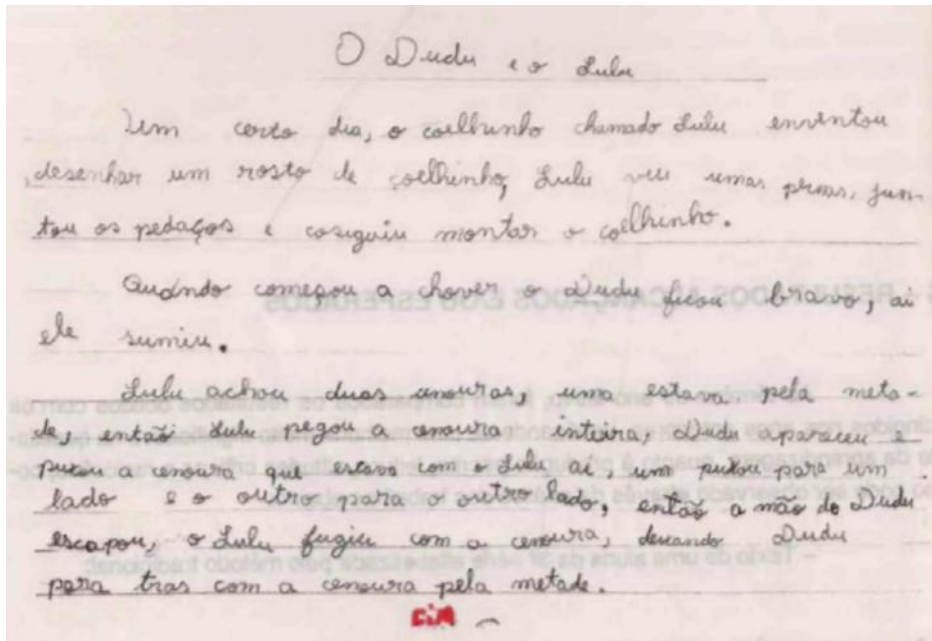 O Dudu e o Lulu
Um certo dia, o coelhinho chamado Lulu enventou
desenhar um rosto de coelhinho, Lulu veu umas pernas, jun-
tou os pedaços e cosiguiu montar o coelhinho.
Quando começou a chover o Dudu ficou bravo, ai
ele sumiu.
Lulu achou duas cenouras, uma estava pela meta-
de, então Lulu pegou a cenoura inteira, Dudu apareceu e
puxou a cenoura que estava com o Lulu ai, um puxou para um
lado e o outro para o outro lado, então a mão do Dudu
escapou, o Lulu fugiu com a cenoura, deixando Dudu
para tras com a cenoura pela metade.